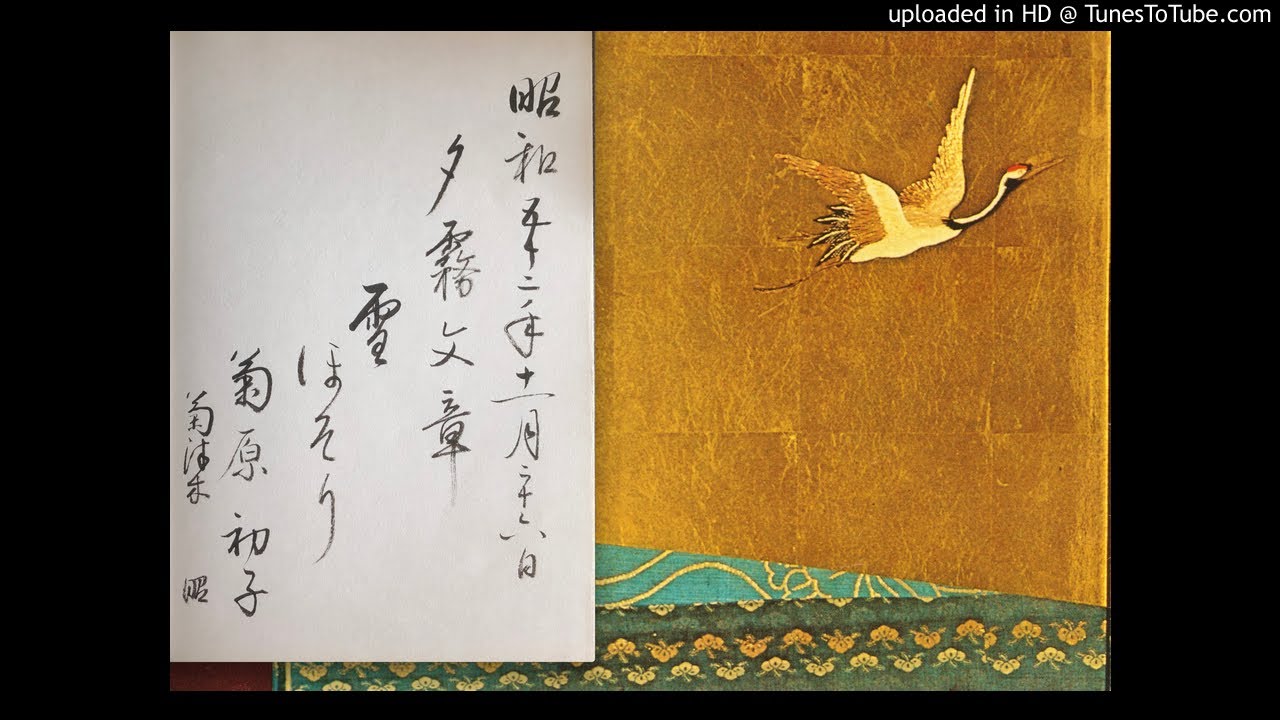 uploaded in HD @ TunesToTube.com
昭和五十二年十一月二十六日
夕霧文章
雪
ほそり
菊原初子
菊津木 昭